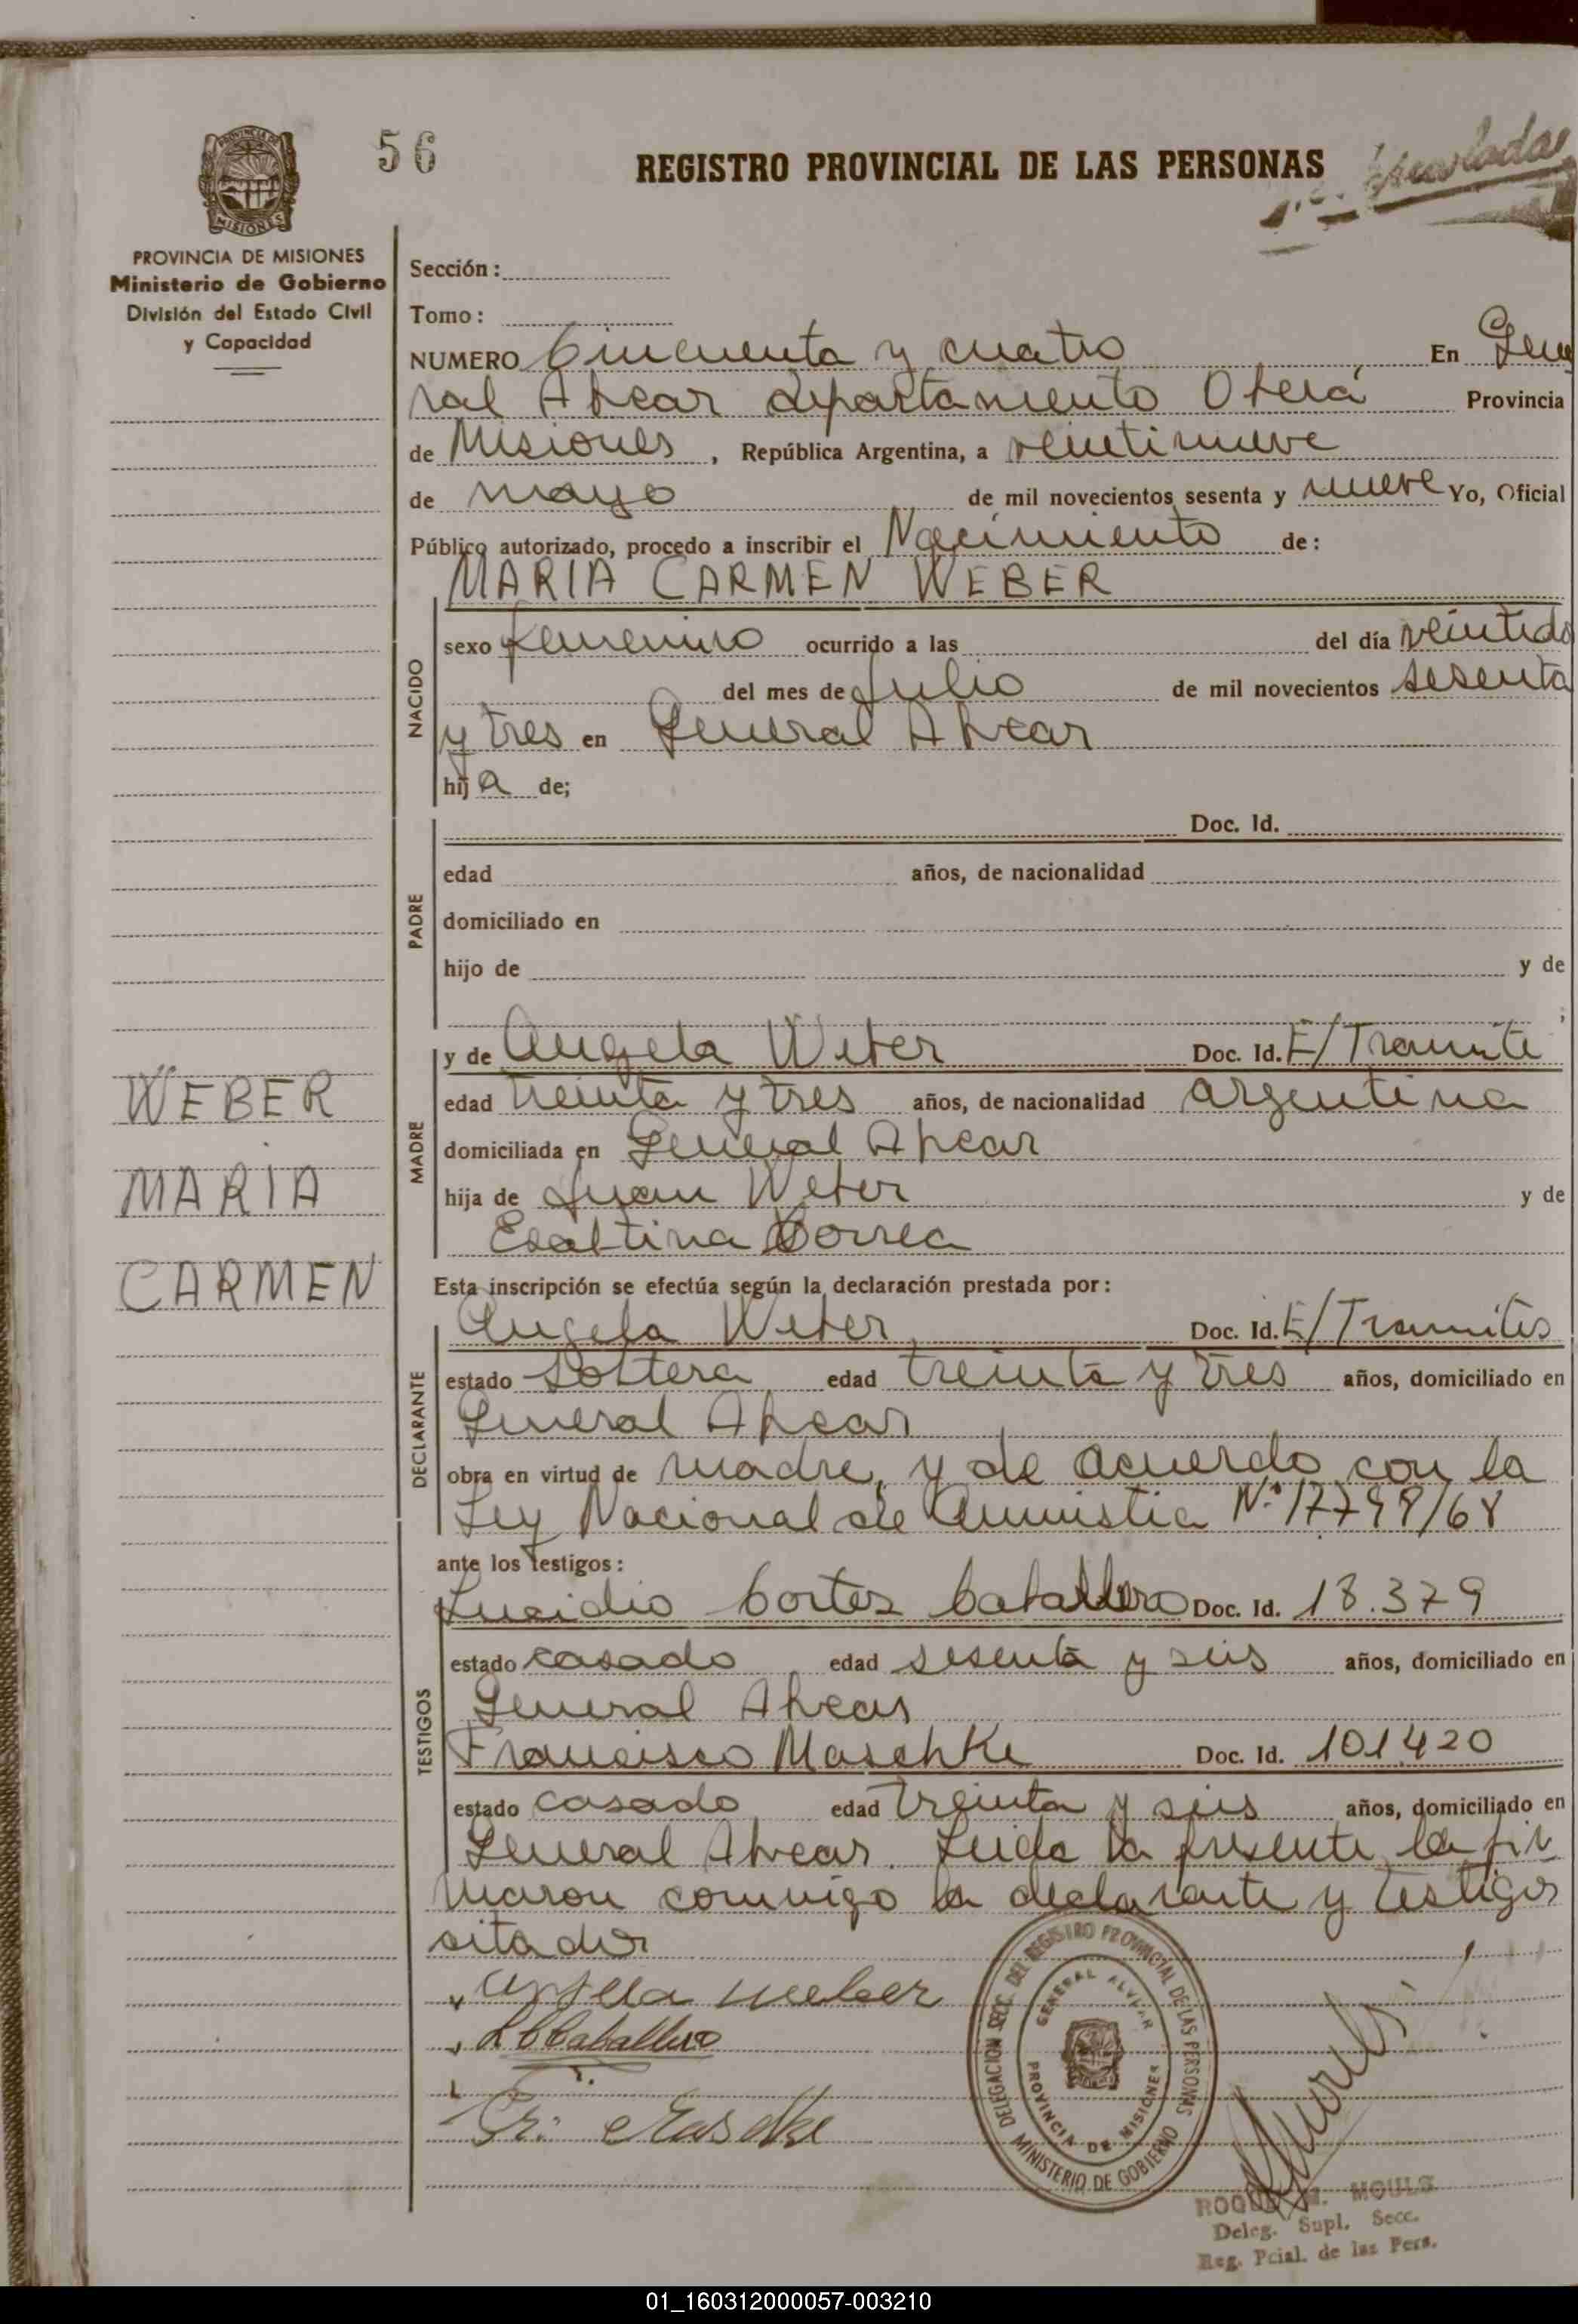 56
REGISTRO PROVINCIAL DE LAS PERSONAS
PROVINCIA DE MISIONES
Ministerio de Gobierno
División del Estado Civil
y Capacidad
Sección:
Tomo:
NUMERO Cincuenta y cuatro En Gene
ral Alvear departamento Oberá Provincia
de Misiones, República Argentina, a veintinueve
de mayo de mil novecientos sesenta y nueve Yo, Oficial
Público autorizado, procedo a inscribir el Nacimiento de:
MARIA CARMEN WEBER
NACIDO
sexo femenino ocurrido a las del día veintidos
del mes de Julio de mil novecientos sesenta
y tres en General Alvear
hija de;
PADRE
Doc. Id.
edad años, de nacionalidad
domiciliado en
hijo de y de
;
WEBER
MARIA
CARMEN
MADRE
y de Angela Weber Doc. Id. E/Tramite
edad treinta y tres años, de nacionalidad argentina
domiciliada en General Alvear
hija de Juan Weber y de
Esaltina Correa
Esta inscripción se efectúa según la declaración prestada por:
DECLARANTE
Angela Weber Doc. Id. E/Tramites
estado Soltera edad treinta y tres años, domiciliado en
General Alvear
obra en virtud de madre, y de acuerdo con la
Ley Nacional de Amnistia N° 17798/68
ante los testigos:
TESTIGOS
Lucidio Cortez Caballero Doc. Id. 18.379
estado casado edad sesenta y seis años, domiciliado en
General Alvear
Francisco Maschke Doc. Id. 101420
estado casado edad treinta y seis años, domiciliado en
General Alvear. Leida la presente la fir
maron conmigo la declarante y testigos
citados
angela weber
L C Caballero
Fr. Maschke
DELEGACION SECC. DEL REGISTRO PROVINCIAL DE LAS PERSONAS
MINISTERIO DE GOBIERNO
GENERAL ALVEAR
PROVINCIA DE MISIONES
ROQUE MOULS
Deleg. Supl. Secc.
Reg. Pcial. de las Pers.
01_160312000057-003210